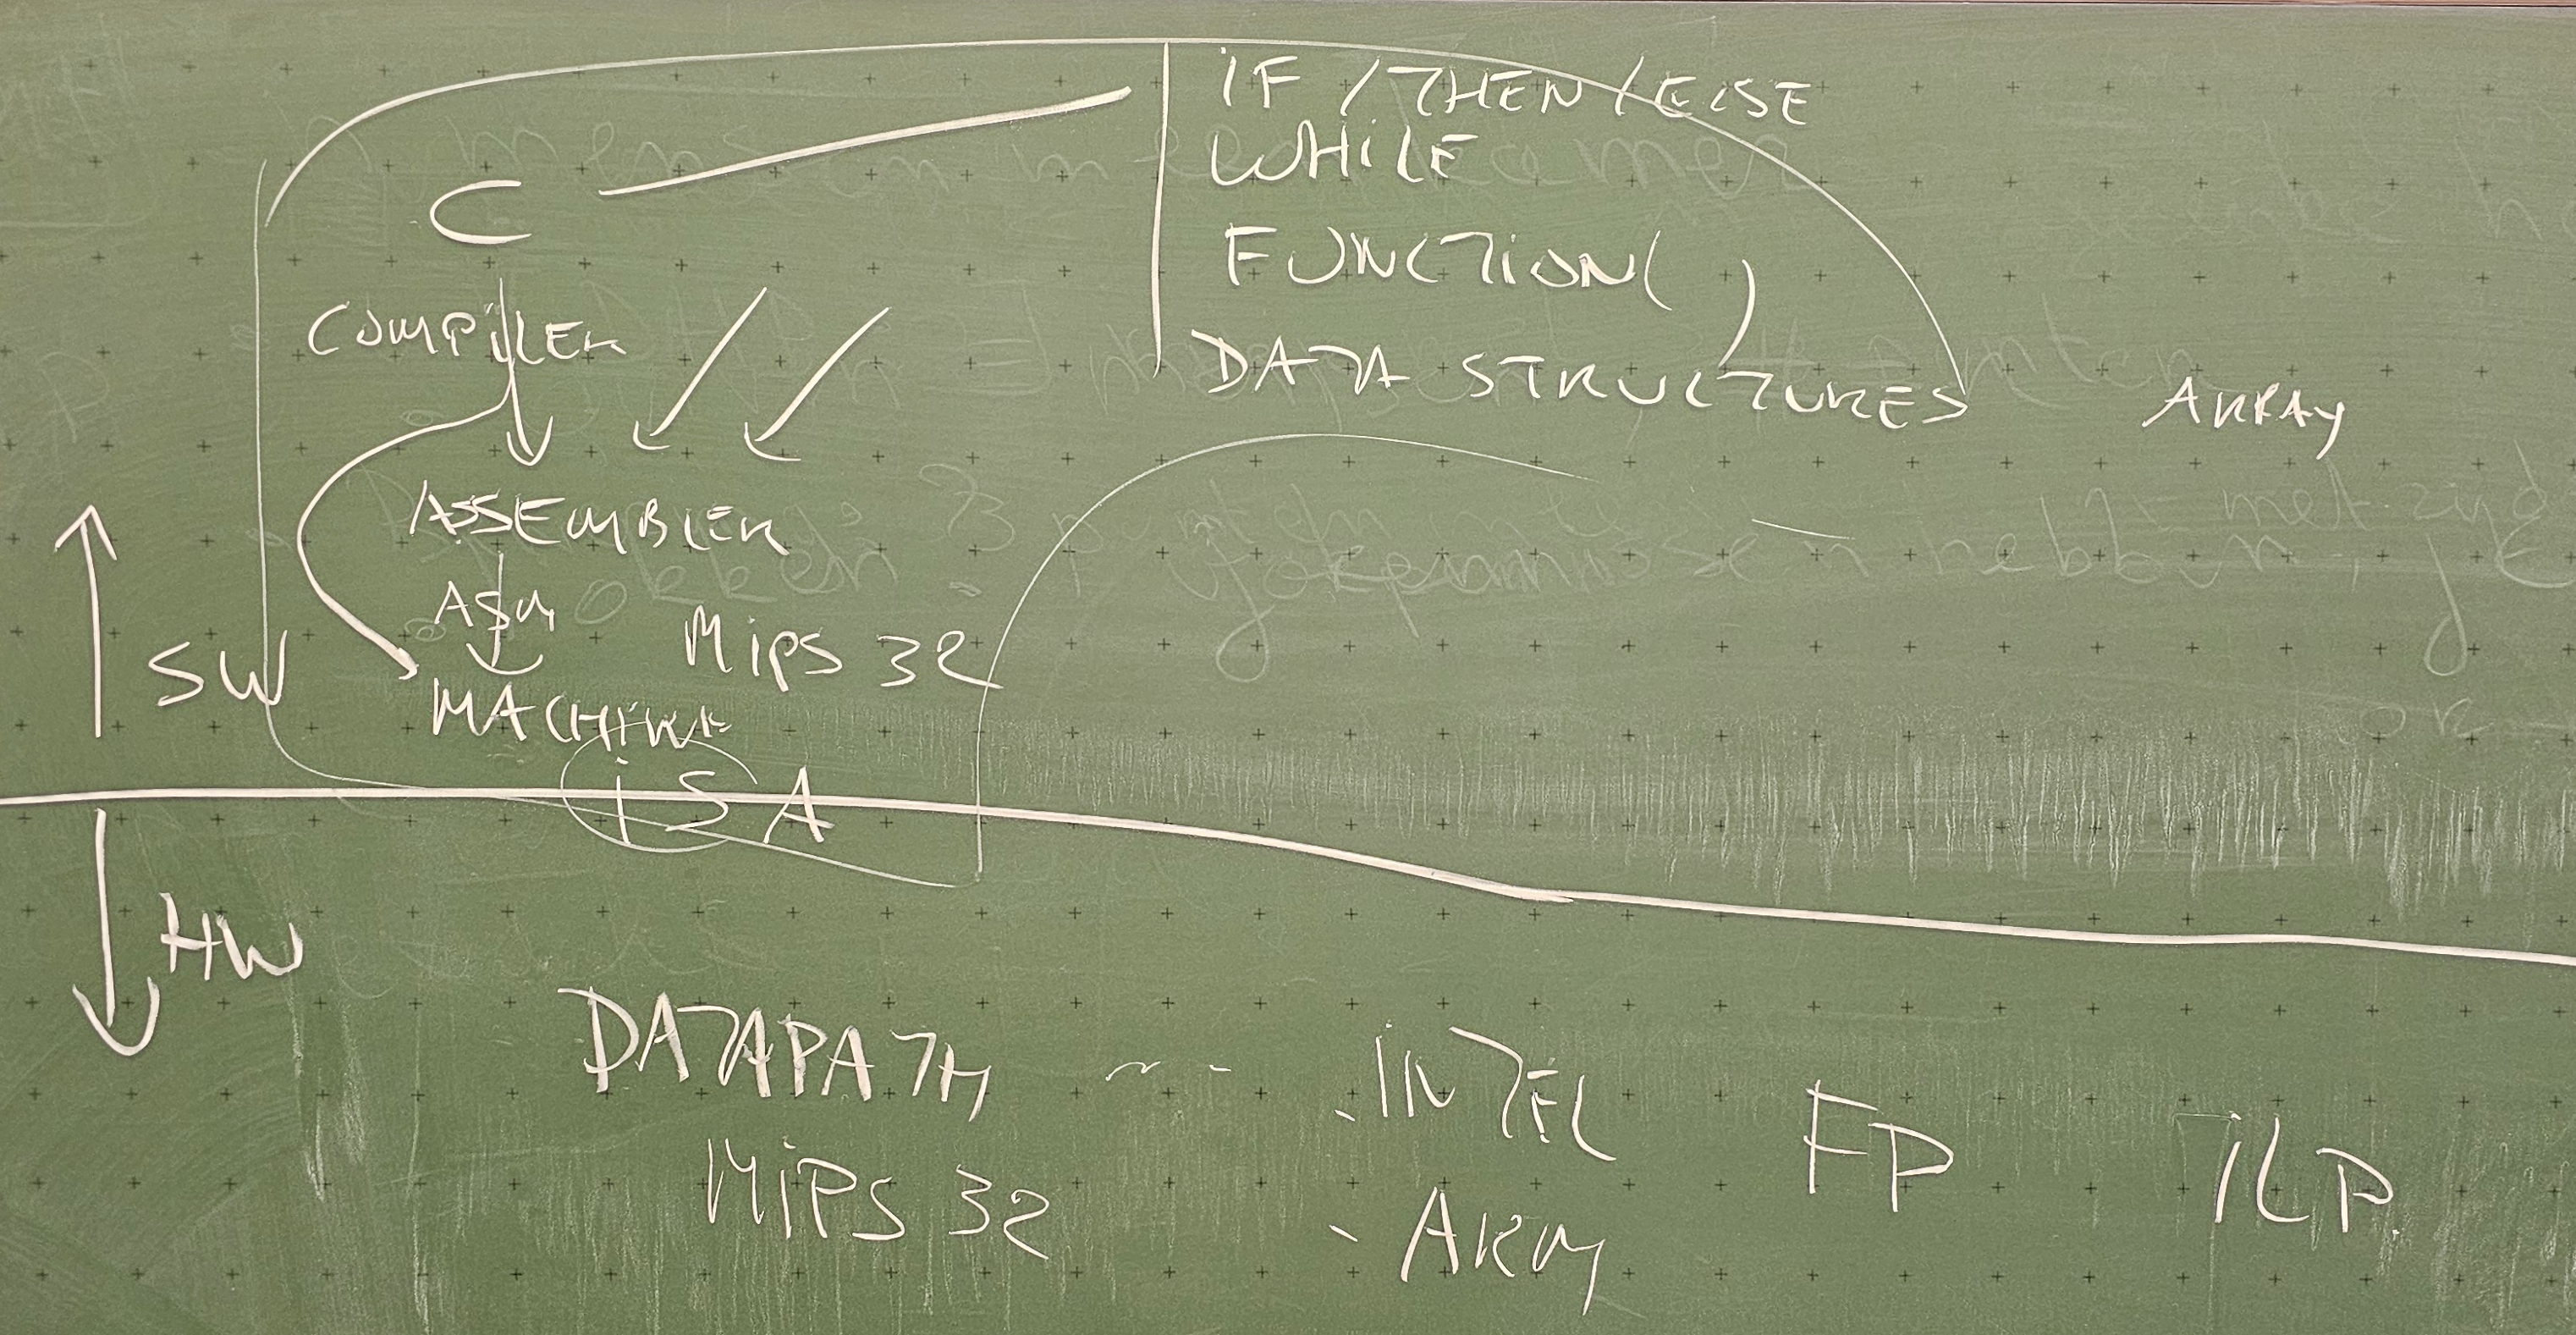 IF / THEN / ELSE
WHILE
C
FUNCTION( )
COMPILER
DATA STRUCTURES
ARRAY
ASSEMBLER
ASM
MIPS 32
SW
MACHINE
ISA
HW
DATAPATH
INTEL
FP
ILP
MIPS 32
ARM